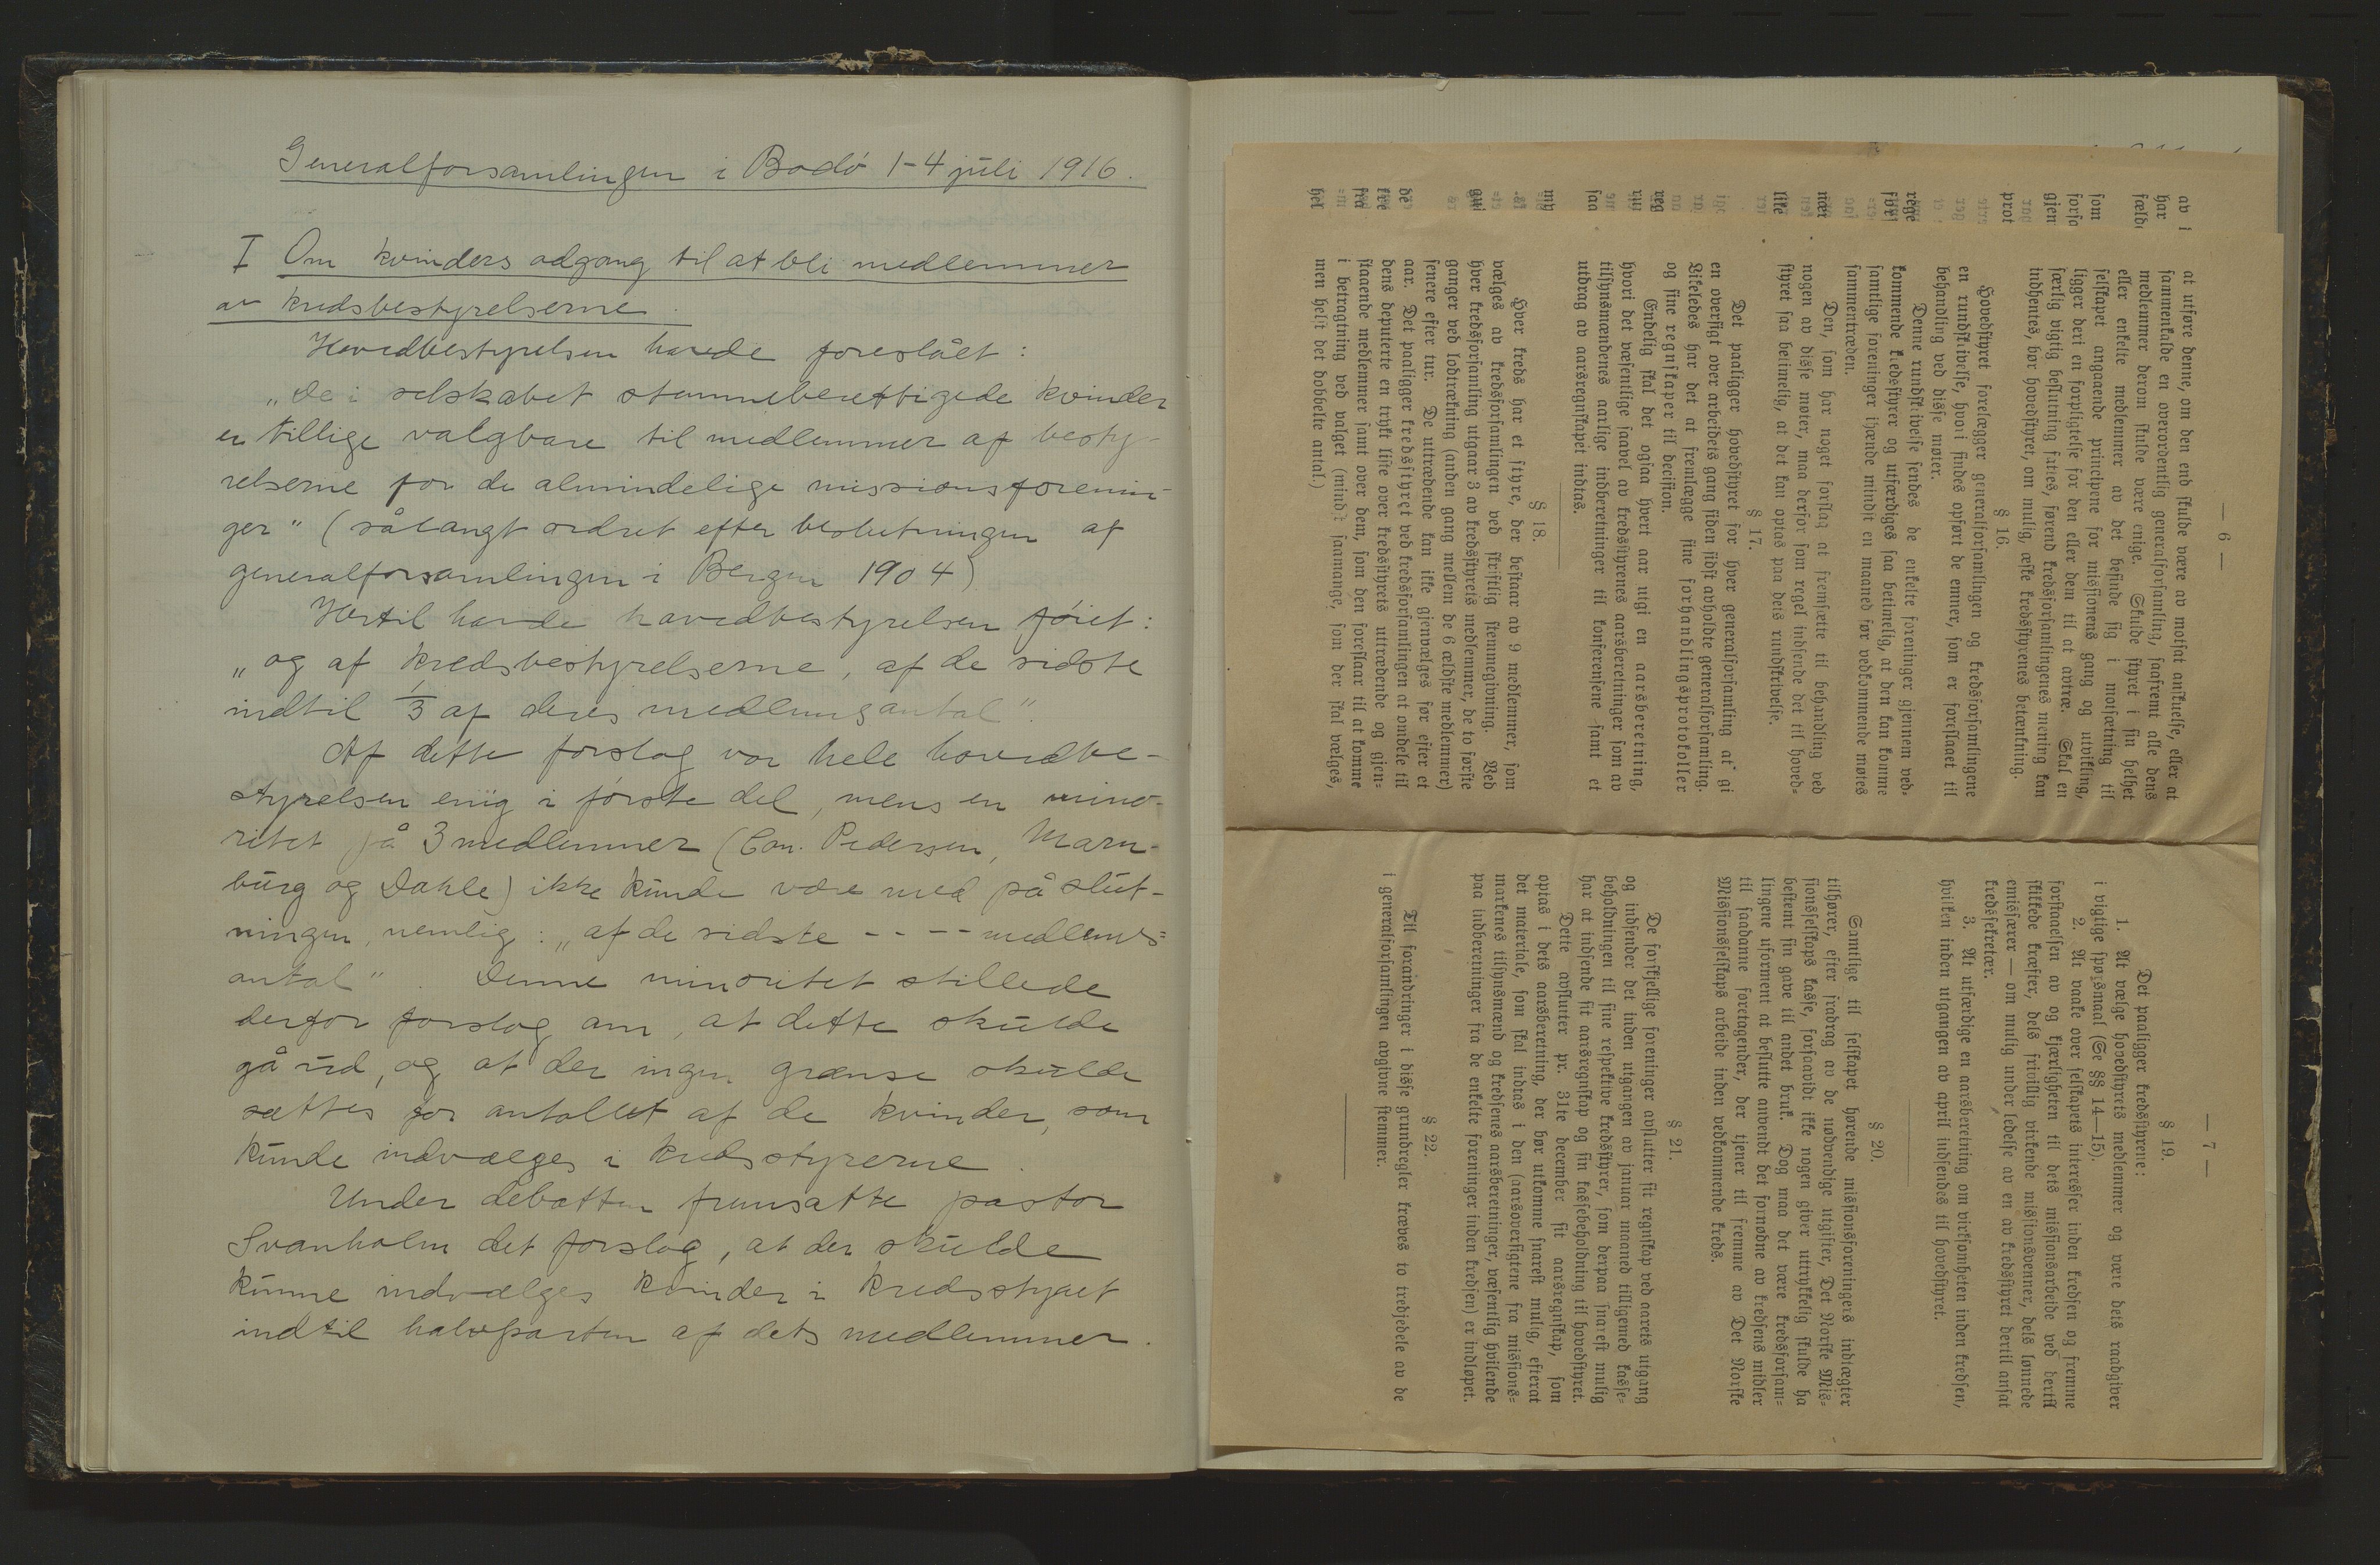 Generalforsamlingen i Bodö 1-4 juli 1916.
I Om kvinders adgang til at bli medlemmer
av kredsbestyrelserne.
Hovedbestyrelsen havde foreslået:
„De i selskabet stemmeberettigede kvinder
er tillige valgbare til medlemmer af besty-
relserne for de almindelige missionsforenin-
ger" (sålangt ordret efter beslutningen af
generalforsamlingen i Bergen 1904)
Hertil havde hovedbestyrelsen föiet:
„og af kredsbestyrelserne, af de sidste
indtil 1/3 af deres medlemsantal".
Af dette forslag var hele hovedbe-
styrelsen enig i förste del, mens en mino-
ritet på 3 medlemmer (Con. Pedersen, Marn-
burg og Dahle) ikke kunde være med på slut-
ningen, nemlig: „af de sidste - - - - medlems=
antal". Denne minoritet stillede
derfor forslag om, at dette skulde
gå ud, og at der ingen grænse skulde
sættes for antallet af de kvinder, som
kunde indvælges i kredsstyrerne.
Under debatten fremsatte pastor
Svanholm det forslag, at der skulde
kunne indvælges kvinder i kredsstyret
indtil halvparten af dets medlemmer.
av i
har
fæld
som
forsa
gjen
prot
rege
føl
nær
like
reg
saa
my
gui
de
fre
fra
hel
— 6 —
at utføre denne, om den end skulde være av motsat anskuelse, eller at
sammenkalde en overordentlig generalforsamling, safremt alle dens
medlemmer derom skulde være enige. Skulde styret i sin helhet
eller enkelte medlemmer av det befinde sig i motsætning til
selskapet angaaende principene for missionens gang og utvikling,
ligger deri en forpligtelse for den eller dem til at avtræ. Skal en
særlig vigtig beslutning fattes, førend kredsforsamlingenes mening kan
indhentes, bør hovedstyret, om mulig, æske kredsstyrenes betænkning.
§ 16.
Hovedstyret forelægger generalforsamlingen og kredsforsamlingene
en rundskrivelse, hvori findes opført de emner, som er foreslaaet til
behandling ved disse møter.
Denne rundskrivelse sendes de enkelte foreninger gjennem ved-
kommende kredsstyrer og utfærdiges saa betimelig, at den kan komme
samtlige foreninger ihænde mindst en maaned før vedkommende møtes
sammentræden.
Den, som har noget forslag at fremsætte til behandling ved
nogen av disse møter, maa derfor som regel indsende det til hoved-
styret saa betimelig, at det kan optas paa dets rundskrivelse.
§ 17.
Det paaligger hovedstyret for hver generalforsamling at gi
en oversigt over arbeidets gang siden sidst avholdte generalforsamling.
Likeledes har det at fremlægge sine forhandlingsprotokoller
og sine regnskaper til decision.
Endelig skal det ogsaa hvert aar utgi en aarsberetning,
hvori det væsentlige saavel av kredsstyrenes aarsberetninger som av
tilsynsmændenes aarlige indberetninger til konferensene samt et
utdrag av aarsregnskapet indtas.
§ 18.
Hver kreds har et styre, der bestaar av 9 medlemmer, som
vælges av kredsforsamlingen ved skriftlig stemmegivning. Ved
hver kredsforsamling utgaar 3 av kredsstyrets medlemmer, de to første
ganger ved lodtrækning (anden gang mellem de 6 ældste medlemmer)
senere efter tur. De uttrædende kan ikke gjenvælges før efter et
aar. Det paaligger kredsstyret ved kredsforsamlingen at omdele til
dens deputerte en trykt liste over kredsstyrets uttrædende og gjen-
staaende medlemmer samt over dem, som den foreslaar til at komme
i betragtning ved valget (mindst saamange, som der skal vælges,
men helst det dobbelte antal.)
— 7 —
§ 19.
Det paaligger kredsstyrene:
1. At vælge hovedstyrets medlemmer og være dets raadgiver
i vigtige spørsmaal (Se §§ 14—15).
2. At vaake over selskapets interesser inden kredsen og fremme
forstaaelsen av og kjærligheten til dets missionsarbeide ved dertil
skikkede kræfter, dels frivillig virkende missionsvenner, dels lønnede
emissærer — om mulig under ledelse av en av kredsstyret dertil ansat
kredssekretær.
3. At utfærdige en aarsberetning om virksomheten inden kredsen,
hvilken inden utgangen av april indsendes til hovedstyret.
§ 20.
Samtlige til selskapet hørende missionsforeningers indtægter
tilhører, efter fradrag av de nødvendige utgifter, Det Norske Mis-
sionsselskaps kasse, forsaavidt ikke nogen giver uttrykkelig skulde ha
bestemt sin gave til andet bruk. Dog maa det være kredsforsam-
lingene uforment at beslutte anvendt det fornødne av kredsens midler
til saadanne foretagender, der tjener til fremme av Det Norske
Missionsselskaps arbeide inden vedkommende kreds.
§ 21.
De forskjellige foreninger avslutter sit regnskap ved aarets utgang
og indsender det inden utgangen av januar maaned tilligemed kasse-
beholdningen til sine respektive kredsstyrer, som derpaa snarest mulig
har at indsende sit aarsregnskap og sin kassebeholdning til hovedstyret.
Dette avslutter pr. 31te december sit aarsregnskap, som
optas i dets aarsberetning, der bør utkomme snarest mulig, efterat
det materiale, som skal indtas i den (aarsoversigtene fra missions-
markenes tilsynsmænd og kredsenes aarsberetninger, væsentlig hvilende
paa indberetninger fra de enkelte foreninger inden kredsen) er indløpet.
§ 22.
Til forandringer i disse grundregler kræves to tredjedele av de
i generalforsamlingen avgivne stemmer.